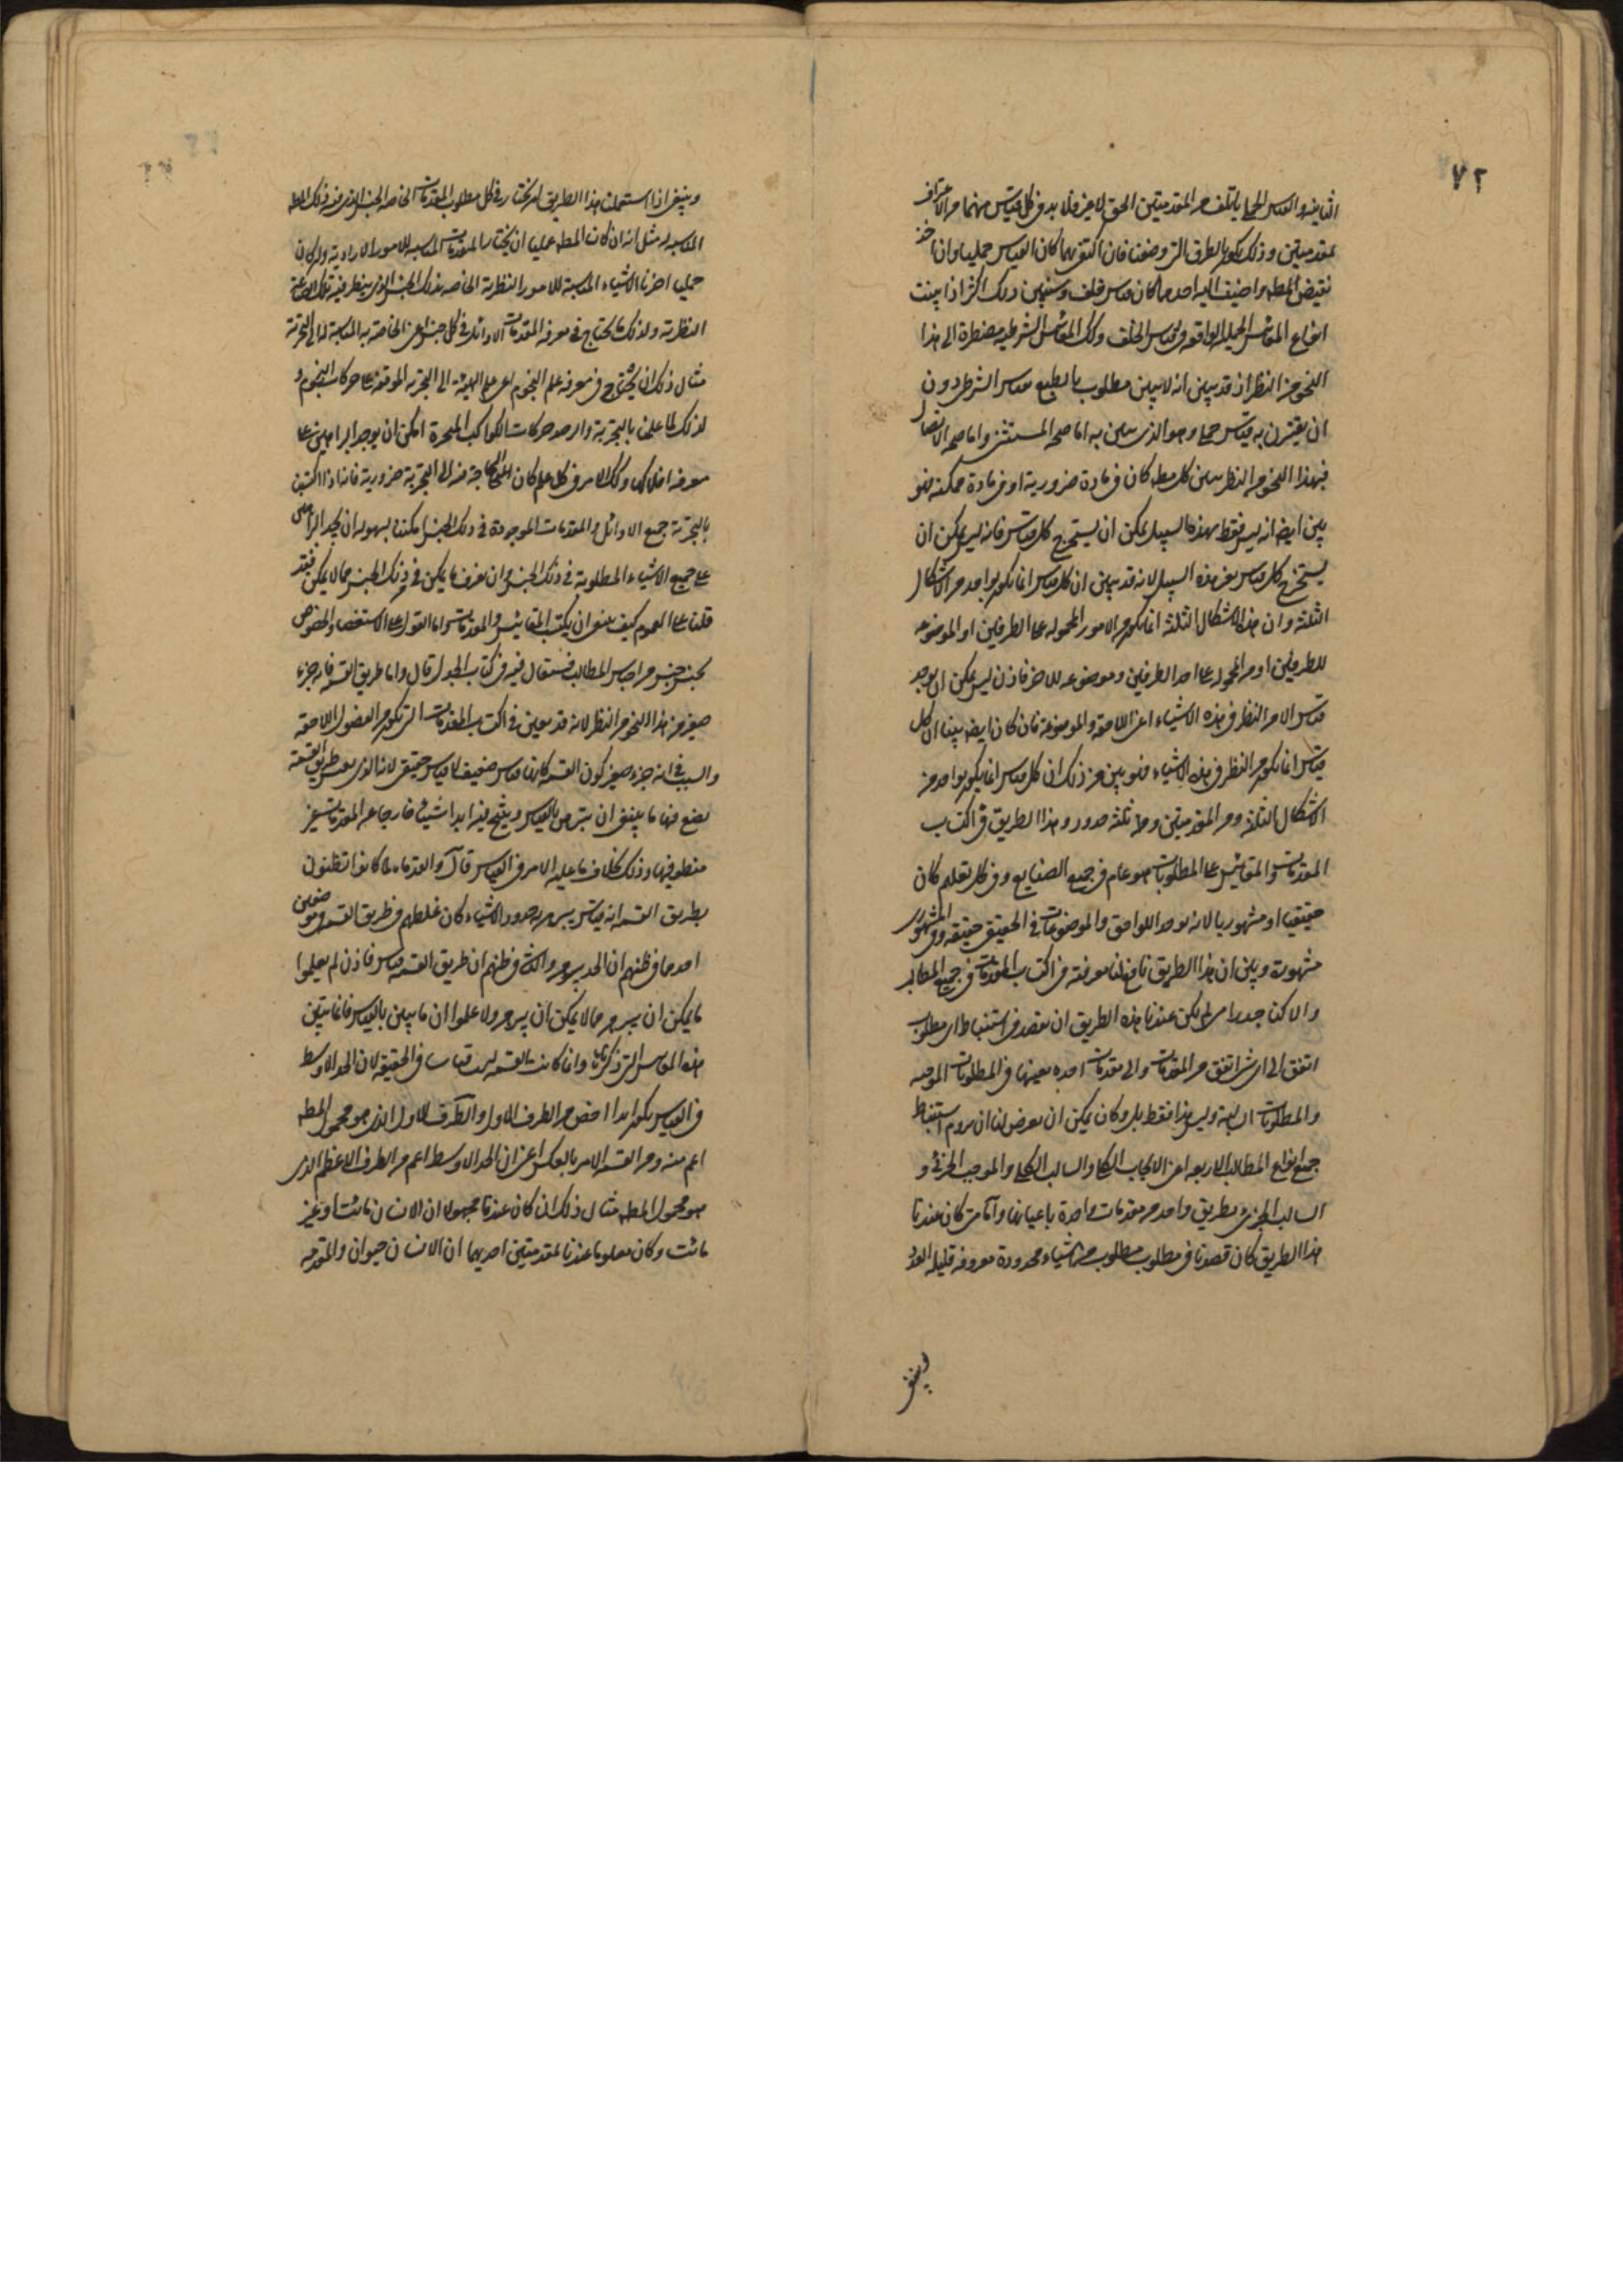 ٧٢
الثانية والقياس الحملي يأتلف من المقدمتين الحق لا غير فلا بد في كل قياس منهما من الاعتراف
بمقدمتين وذلك يكون بالطرق التي وصفنا فان اكتفى بهما كان القياس حمليا وان اخذ
نقيض المطلوب واضيف اليه احدهما كان قياس خلف وسيبين ذلك اكثر اذا بينت
انواع المقاييس الحملية الواقعة في قياس الخلف وكذلك المقاييس الشرطية مضطرة الى هذا
النحو من النظر اذ قد يبين انه لا يبين مطلوب بالطبع بقياس الشرط دون
ان يقترن به قياس حملي وهو الذي يبين به اما صحة المستثنى واما صحة الاتصال
فبهذا النحو من النظر يبين كل مطلوب كان في مادة ضرورية او في مادة ممكنة فهو
بين ايضا انه ليس فقط بهذه السبيل يمكن ان يستخرج كل قياس فانه ليس يمكن ان
يستخرج كل قياس بغير هذه السبيل لانه قد يبين ان كل قياس انما يكون بواحد من الاشكال
الثلثة وان هذه الاشكال الثلثة انما تكون من الامور المحمولة على الطرفين او الموضوعة
للطرفين او من المحمولة على احد الطرفين وموضوعة للاخر فاذن ليس يمكن ان يوجد
قياس الا من النظر في هذه الاشياء اعني اللاحقة والموضوعة فان كان ايضا بينا ان كل
قياس انما يكون من النظر في هذه الاشياء فهو بين من ذلك ان كل قياس انما يكون بواحد من
الاشكال الثلثة ومن المقدمتين ومن ثلثة حدود وهذا الطريق في اكتساب
المقدمات والمقاييس على المطلوبات هو عام في جميع الصنايع وفي كل تعليم كان
حقيقيا او مشهوريا لانه يوجد اللواحق والموضوعات في الحقيقي حقيقة وفي المشهوري
مشهورة وبين ان هذا الطريق نافع لنا معرفته في اكتساب المقدمات في جميع المطالب
والا كنا جدراء متى لم يكن عندنا هذه الطريق ان نقصد في استنباط اي مطلوب
اتفق الى اي شيء اتفق من المقدمات والى مقدمات واحدة بعينها في المطلوبات الموجبة
والمطلوبات السالبة وليس هذا فقط بل وكان يمكن ان يعرض لنا ان نروم استنباط
جميع انواع المطالب الاربعة اعني الايجاب الكلي والسالب الكلي والموجب الجزئي و
السالب الجزئي بطريق واحد من مقدمات واحدة باعيانها واما متى كان عندنا
هذا الطريق كان قصدنا في مطلوب مطلوب من اشياء محدودة معروفة قليلة العدد
وينبغي
وينبغي اذا استعملنا هذا الطريق ان نختار في كل مطلوب المقدمات الخاصة بالجنس الذي منه ذلك المطلوب
المناسبة له مثل انه ان كان المطلوب عمليا ان نختار المقدمات المناسبة للامور الارادية وان كان
علميا اخذنا الاشياء المناسبة للامور النظرية الخاصة بذلك الجنس الذي ينظر فيه تلك الصناعة
النظرية ولذلك نحتاج في معرفة المقدمات الاوائل في كل جنس اعني الخاصة به المناسبة له الى التجربة
مثال ذلك انا نحتاج في معرفة علم النجوم اعني علم الهيئة الى التجربة الموقفة على حركات النجوم و
لذلك لما علمنا بالتجربة والرصد حركات الكواكب المتحيرة امكن ان يوجد البراهين على
معرفة افلاكها وكذلك الامر في كل علم كان الحاجة منه الى التجربة ضرورية فانه اذا اكتسبت
بالتجربة جميع الاوائل والمقدمات الموجودة في ذلك الجنس امكننا بسهولة ان نجد البراهين
على جميع الاشياء المطلوبة في ذلك الجنس وان نعرف ما يمكن في ذلك الجنس مما لا يمكن فقد
قلنا على العموم كيف ينبغي ان يكتسب المقاييس والمقدمات واما القول على الاستقصاء والخصوص
بجنس جنس من اجناس المطالب فستقال فيه في كتاب الجدل قال واما طريق القسمة فانه جزء
صغير من هذا النحو من النظر لانه قد يعين في اكتساب المقدمات التي تكون من الفصول اللاحقة
والسبب في انه جزء صغير كون القسمة كانها قياس ضعيف لا قياس حقيقي لان الذي يقيس طريق القسمة
يضع فيها ما ينبغي ان يتبرهن بالقياس وينتج فيه ابدا شيئا خارجا عن المقدمات غير
منطو فيها وذلك بخلاف ما عليه الامر في القياس قال والقدماء لما كانوا يظنون
بطريق القسمة انه قياس يبين به حدود الاشياء كان غلطهم في طريق القسمة في موضعين
احدهما في ظنهم ان الحد يبرهن والثاني في ظنهم ان طريق القسمة قياس فاذن لم يعلموا
ما يمكن ان يبرهن مما لا يمكن ان يبرهن ولا علموا ان ما يبين بالقياس فانما يبين
بهذه المقاييس التي ذكرناها وانما كانت القسمة ليست قياسا في الحقيقة لان الحد الاوسط
في القياس يكون ابدا اخص من الطرف الاول والطرف الاول الذي هو محمول المطلوب
اعم منه ومن القسمة الامر بالعكس اعني ان الحد الاوسط اعم من الطرف الاعظم الذي
هو محمول المطلوب مثال ذلك ان كان عندنا مجهولا ان الانسان مائت او غير
مائت وكان معلوما عندنا بمقدمتين احديهما ان الانسان حيوان والمقدمة